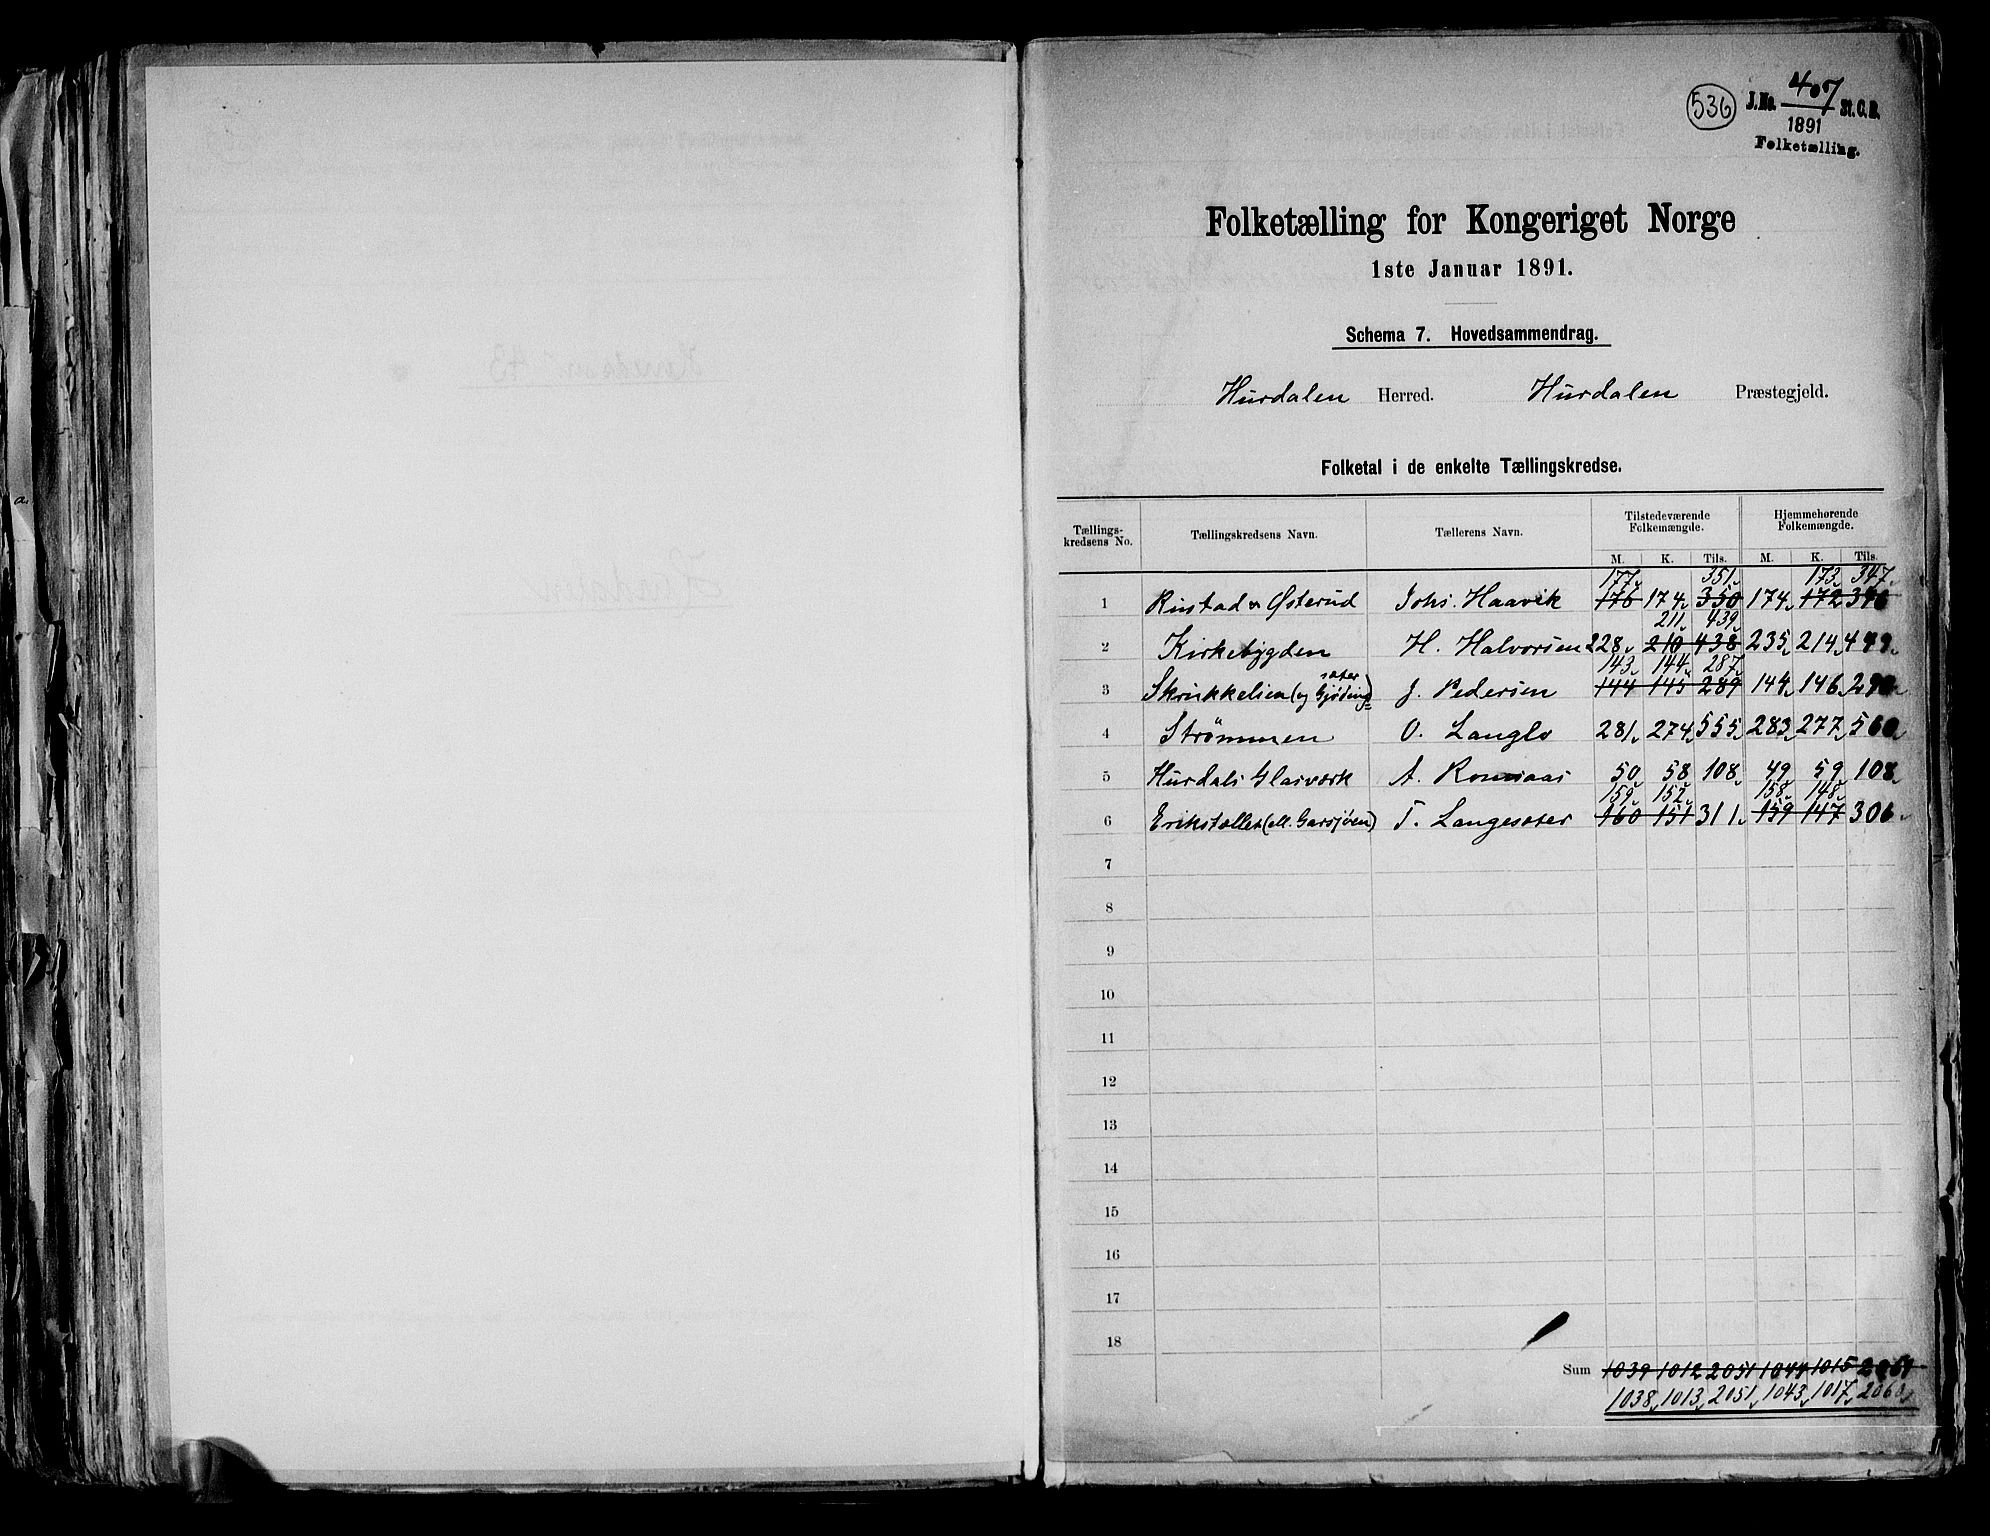 536
J.No. 407 St.C.B.
1891
Folketælling.
Folketælling for Kongeriget Norge
1ste Januar 1891.
Schema 7. Hovedsammendrag.
Hurdalen Herred. Hurdalen Præstegjeld.
Folketal i de enkelte Tællingskredse.
Tællings- kredsens No. Tællingskredsens Navn. Tællerens Navn. Tilstedeværende Folkemængde. Hjemmehørende Folkemængde.
M. K. Tils. M. K. Tils.
177 351 173 347
1 Rustad & Østerud Johs. Haavik 176 174 350 174 172 346
211 439
2 Kirkebygden H. Halvorsen 228 210 438 235 214 449
sæter) 143 144 287
3 Skrukkelien (og Gjøding= J. Pedersen 144 145 289 144 146 290
4 Strømmen O. Langlo 281 274 555 283 277 560
5 Hurdals Glasværk A. Romsaas 50 58 108 49 59 108
159 152 158 148
6 Erikstællet (ell. Garsjøen) T. Langesæter 160 151 311 159 147 306
7
8
9
10
11
12
13
14
15
16
17
18
Sum 1039 1012 2051 1044 1015
1038 1013 2051 1043 1017 2060